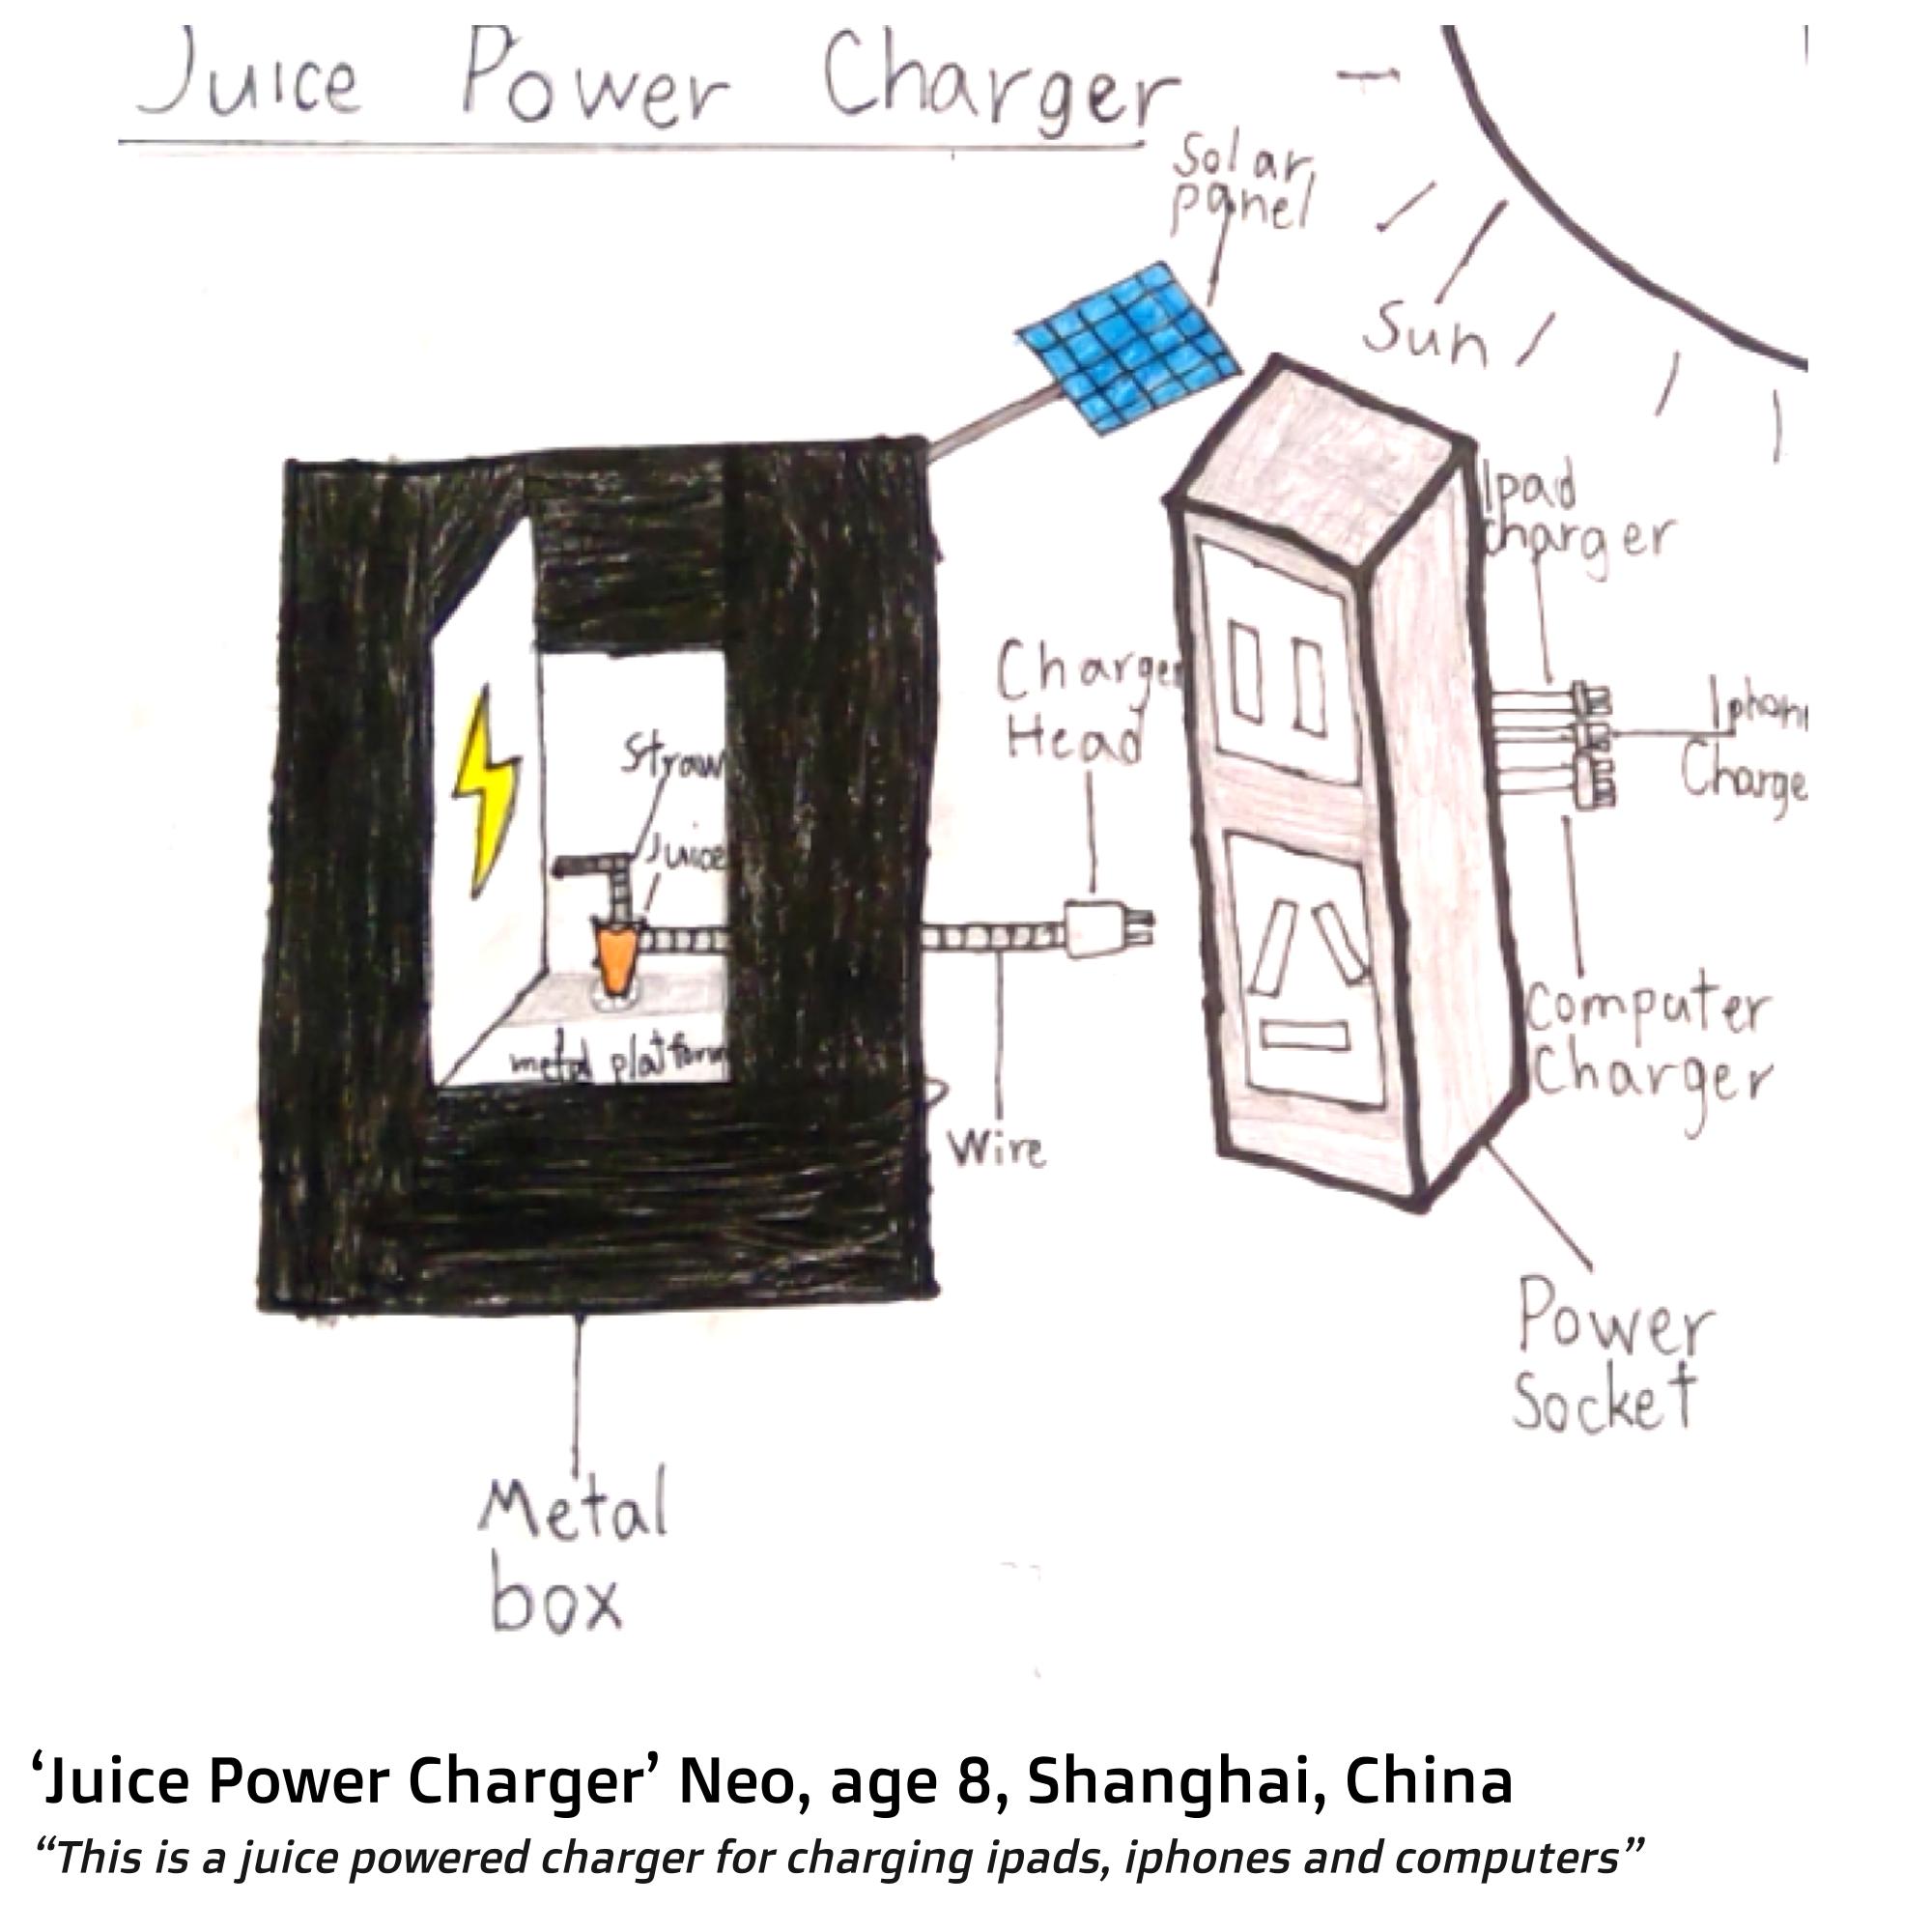 Juice Power Charger
Solar
panel
Sun
Ipad
charger
Charger
Head
Iphon
Charge
Straw
Juice
metal platform
Computer
Charger
Wire
Power
Socket
Metal
box
‘Juice Power Charger’ Neo, age 8, Shanghai, China
“This is a juice powered charger for charging ipads, iphones and computers”